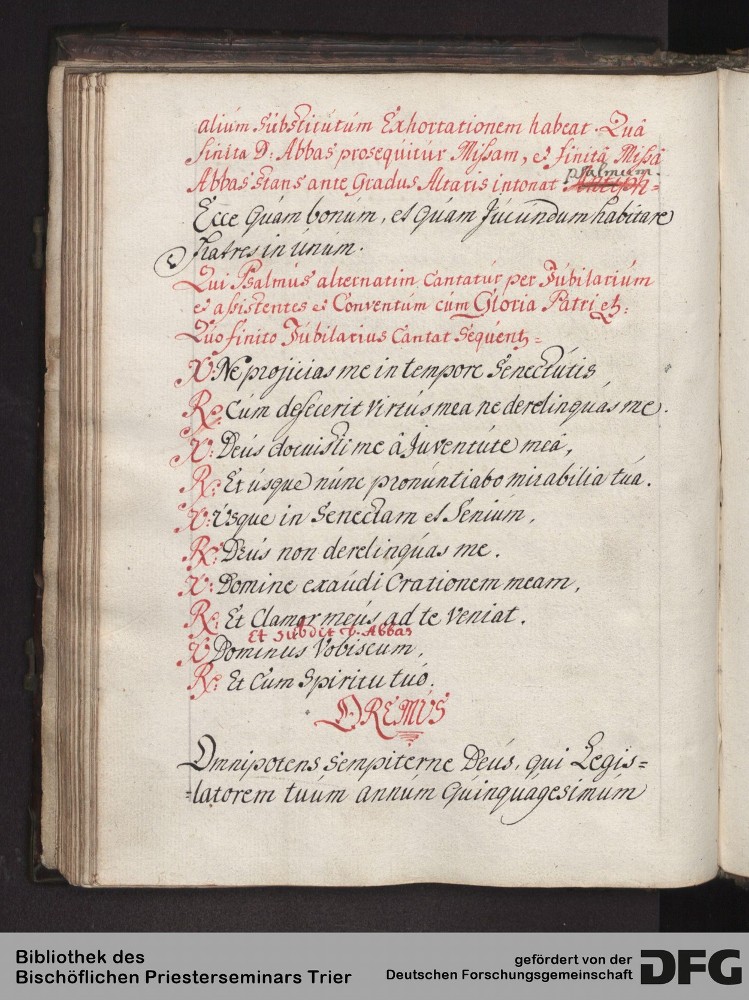 alium substitutum Exhortationem habeat. Quâ
finita D: Abbas prosequitur Missam, et finitâ Missâ
psalmum.
Abbas stans ante Gradus Altaris intonat Antiph=
Ecce Quam bonum, et Quam Jucundum habitare
fratres in unum.
Qui Psalmus alternatim Cantatur per Jubilarium
et assistentes et Conventum cum Gloria Patri etc:
Quo finito Jubilarius Cantat sequent=
V: Ne projicias me in tempore Senectutis
R: Cum defecerit virtus mea ne derelinquas me.
V: Deus docuisti me â Juventute meâ,
R: Et usque nunc pronuntiabo mirabilia tua.
V: Usque in Senectam et Senium,
R: Deus non derelinquas me.
V: Domine exaudi Orationem meam,
R: Et Clamor meus ad te Veniat.
Et subdit D. Abbas
V Dominus Vobiscum,
R: Et Cum Spiritu tuo.
OREMUS
Omnipotens sempiterne Deus, qui Legis=
=latorem tuum annum Quinquagesimum
Bibliothek des
Bischöflichen Priesterseminars Trier
gefördert von der
Deutschen Forschungsgemeinschaft
DFG